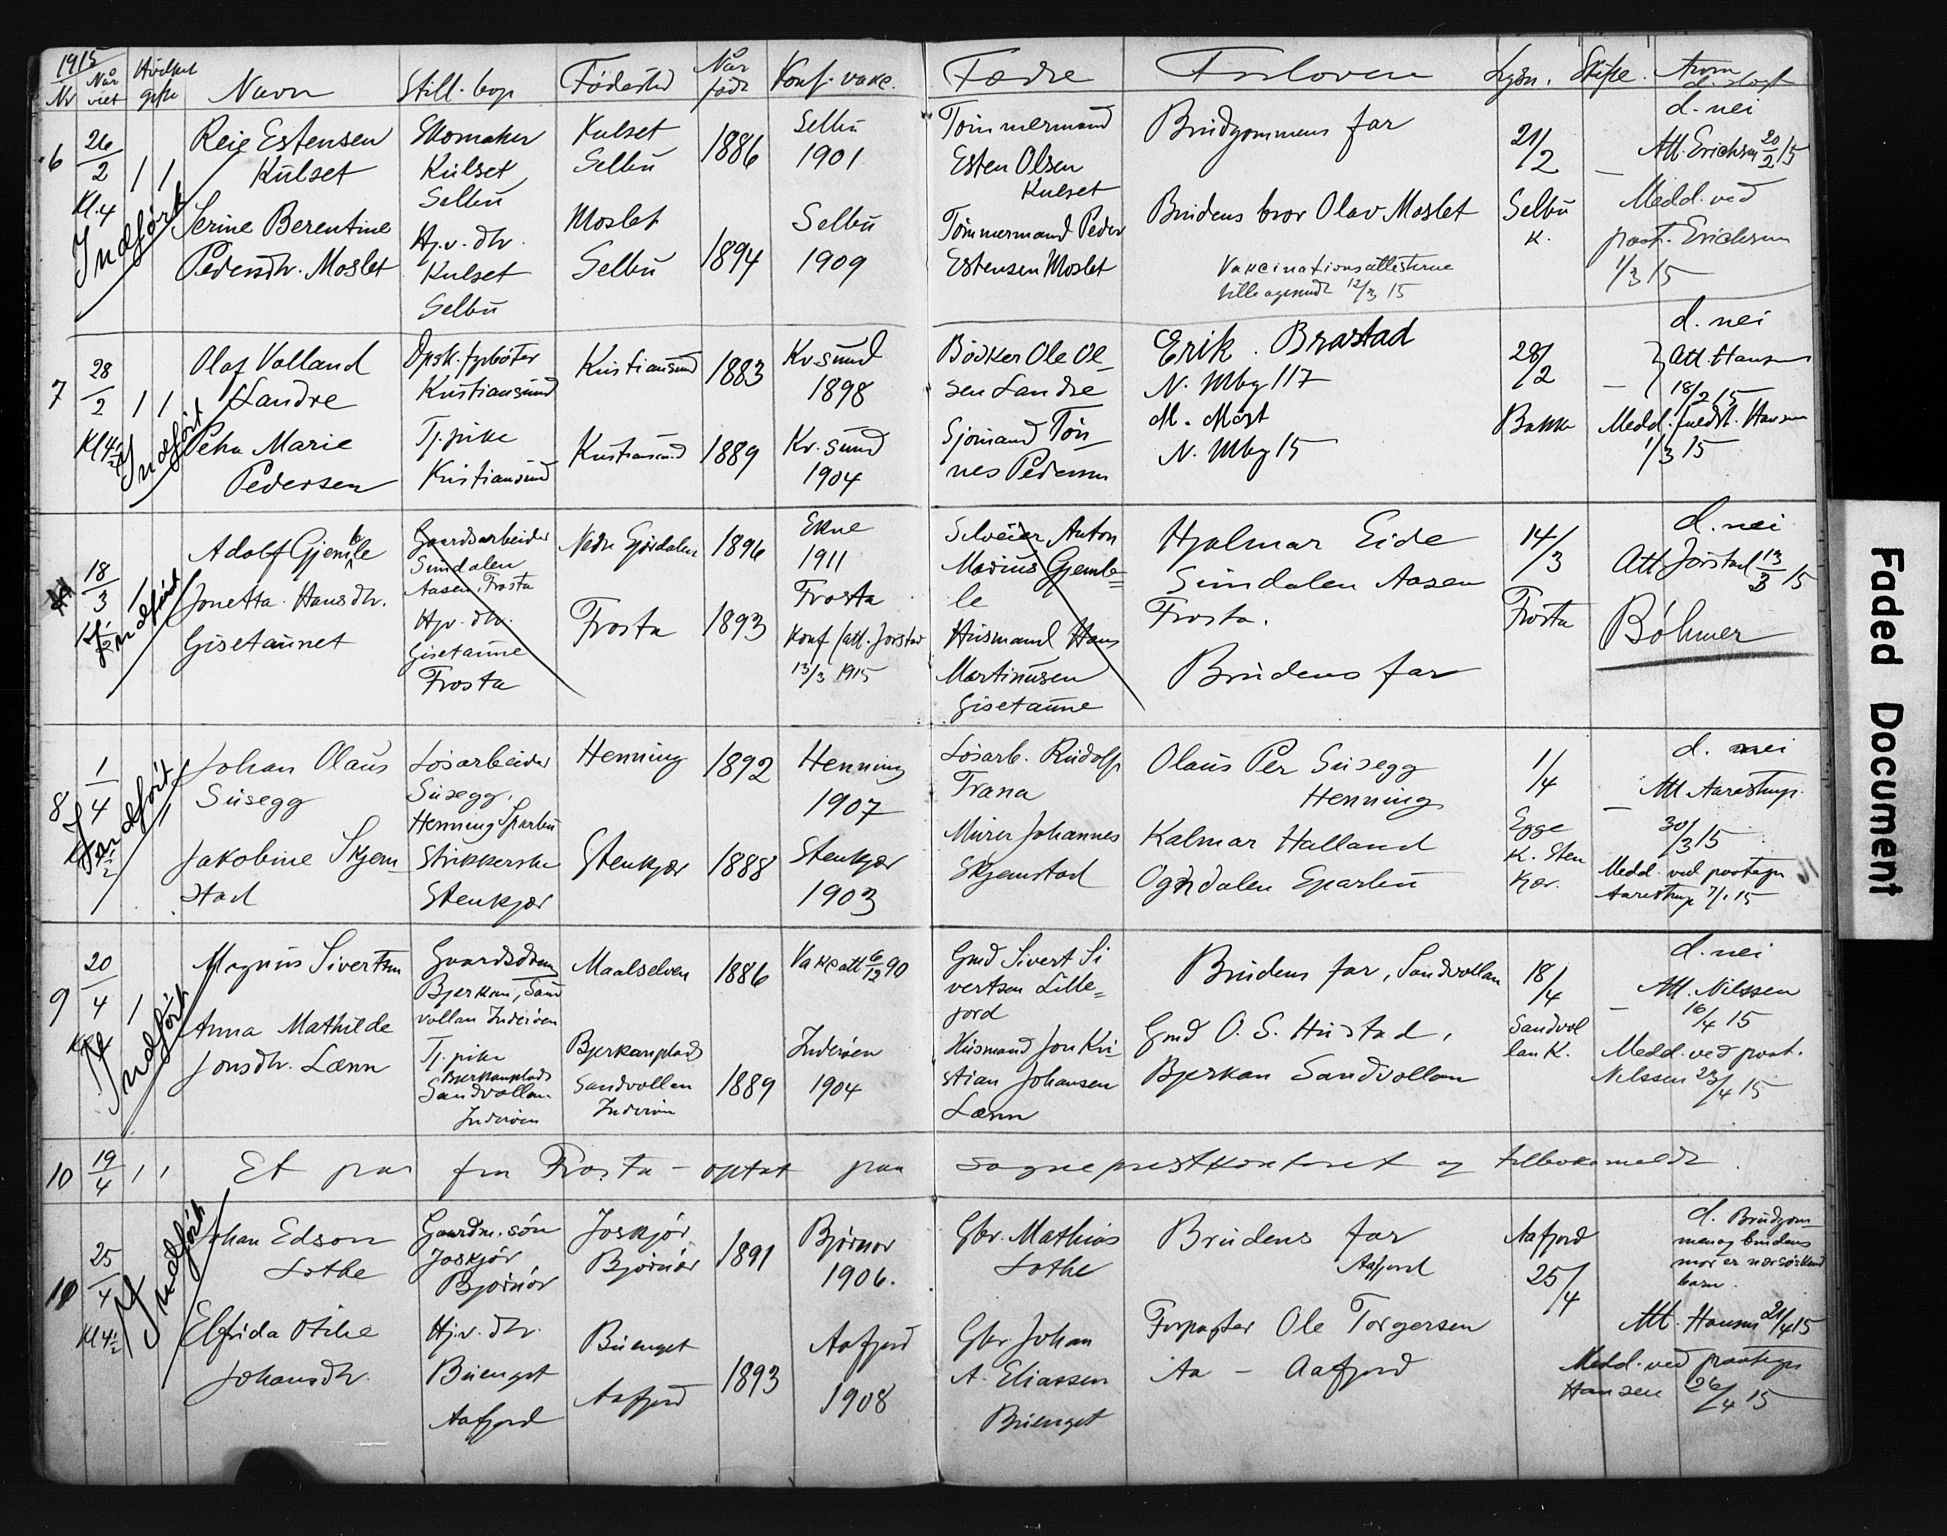 1915
Nr Når viet gifte Navn Still. bop Fødested Når født Konf. vakc. Fædre Forlovere Lysn. Skifte.
6 26/2 Kl. 4 1 1
Indført
Reie Estensen
Kulset
Skomaker
Kulset
Selbu
Kulset
Selbu
1886
Selbu
1901
Tømmermand
Esten Olsen
Kulset
Brudgommens far
21/2
Selbu
K.
–
d. nei
Att. Erichsen 20/2 15
Medd. ved
prest. Erichsen
1/3 15
Serine Berentine
Pedersdtr. Moslet
Hj.v. dtr.
Kulset
Selbu
Moslet
Selbu
1894
Selbu
1909
Tømmermand Peder
Estensen Moslet
Brudens bror Olav Moslet
Vakcinationsattesterne
12/3 15
7 28/2 Kl 4½ 1 1
Indført
Olaf Volland
Landre
Kristiansund
Kristiansund
1883
Kr.sund
1898
Bødker Ole Ol-
sen Landre
Erik. Brastad
N. Mbg 117
28/2
Bakke
–
d. nei
Att. Hansen
18/2 15
Medd. Hansen
1/3 15
Petra Marie
Pedersen
Tj.pike
Kristiansund
Kristiansund
1889
Kr. sund
1904
Sjømand Tøn-
nes Pedersen
M. Møst
N. Mbg 15
18/3 1
Indført
Adolf Gjemble
Gaardsarbeider
Sundalen
Aasen, Frosta
Nedre Stjørdalen
1896
Ekne
1911
Selveier Anton
Marius Gjemb-
le
Hjalmar Eide
Sundalen Aasen
Frosta.
14/3
Frosta
d. nei
Att Jørstad 13/3 15
Bøhmer
Jonetta Hansdtr.
Gisetaunet
Hjv. dtr.
Gisetaune
Frosta
Frosta
1893
Frosta
Konf (att. Jørstad
13/3 1915
Husmand Hans
Martinusen
Gisetaune
Brudens far
8 1/4
Indført
Johan Olaus
Susegg
Løsarbeider
Susegg,
Henning Sparbu
Henning
1892
Henning
1907
Løsarb. Rudolf
Trana
Olaus Per Susegg
Henning
1/4
Egge
K. Sten
kjær.
–
d. nei
Att Aarestrup.
30/3 15
Medd. ved
Aarestrup 7/4 15
Jakobine Skjem-
stad
Strikkerske
Stenkjær
Stenkjær
1888
Stenkjær
1903
Murer Johannes
Skjemstad
Kalmar Halland
Ogndalen Sparbu
9 20/4 1
Indført
Magnus Sivertsen
Gaardsdreng
Bjerkan, Sand
vollan Inderøen
Maalselven
1886
Vakc att 6/12 90
Gmd Sivert Si
vertsen Lille-
jord
Brudens far, Sandvollan
18/4
Sandvol
lan K.
–
d. nei
Att. Nilssen
16/4 15
Medd. ved prest.
Nilssen 23/4 15
Anna Mathilde
Jonsdtr. Lænn
Tj. pike
Bjerkanplads
Sandvollan
Inderøen
Bjerkanplads
Sandvollan
Inderøen
1889
Inderøen
1904
Husmand Jon Kri
stian Johansen
Lænn
Gmd O. S. Hustad,
Bjerkan Sandvollan
10 19/4 1 1 Et par fra Frosta – optat paa sogneprestkontoret og tilbakemeldt.
25/4 Kl 4½
Indført
Johan Edson
Lothe
Gaardm. søn
Joskjør
Bjørnør
Joskjør
Bjørnør
1891
Bjørnør
1906.
Gbr. Mathias
Lothe
Brudens far
Aafjord
Aafjord
25/4
d. Brudgom-
men og brudens
mor er næsøskend
barn.
Att. Hansen 21/4 15
Medd. ved
Hansen 26/4 15
Elfrida Otilie
Johansdtr.
Hj.v. dtr.
Buenget
Aafjord
Buenget
Aafjord
1893
Aafjord
1908
Gbr Johan
A. Eliassen
Buenget
Forpagter Ole Torgersen
Aa – Aafjord
Faded Document